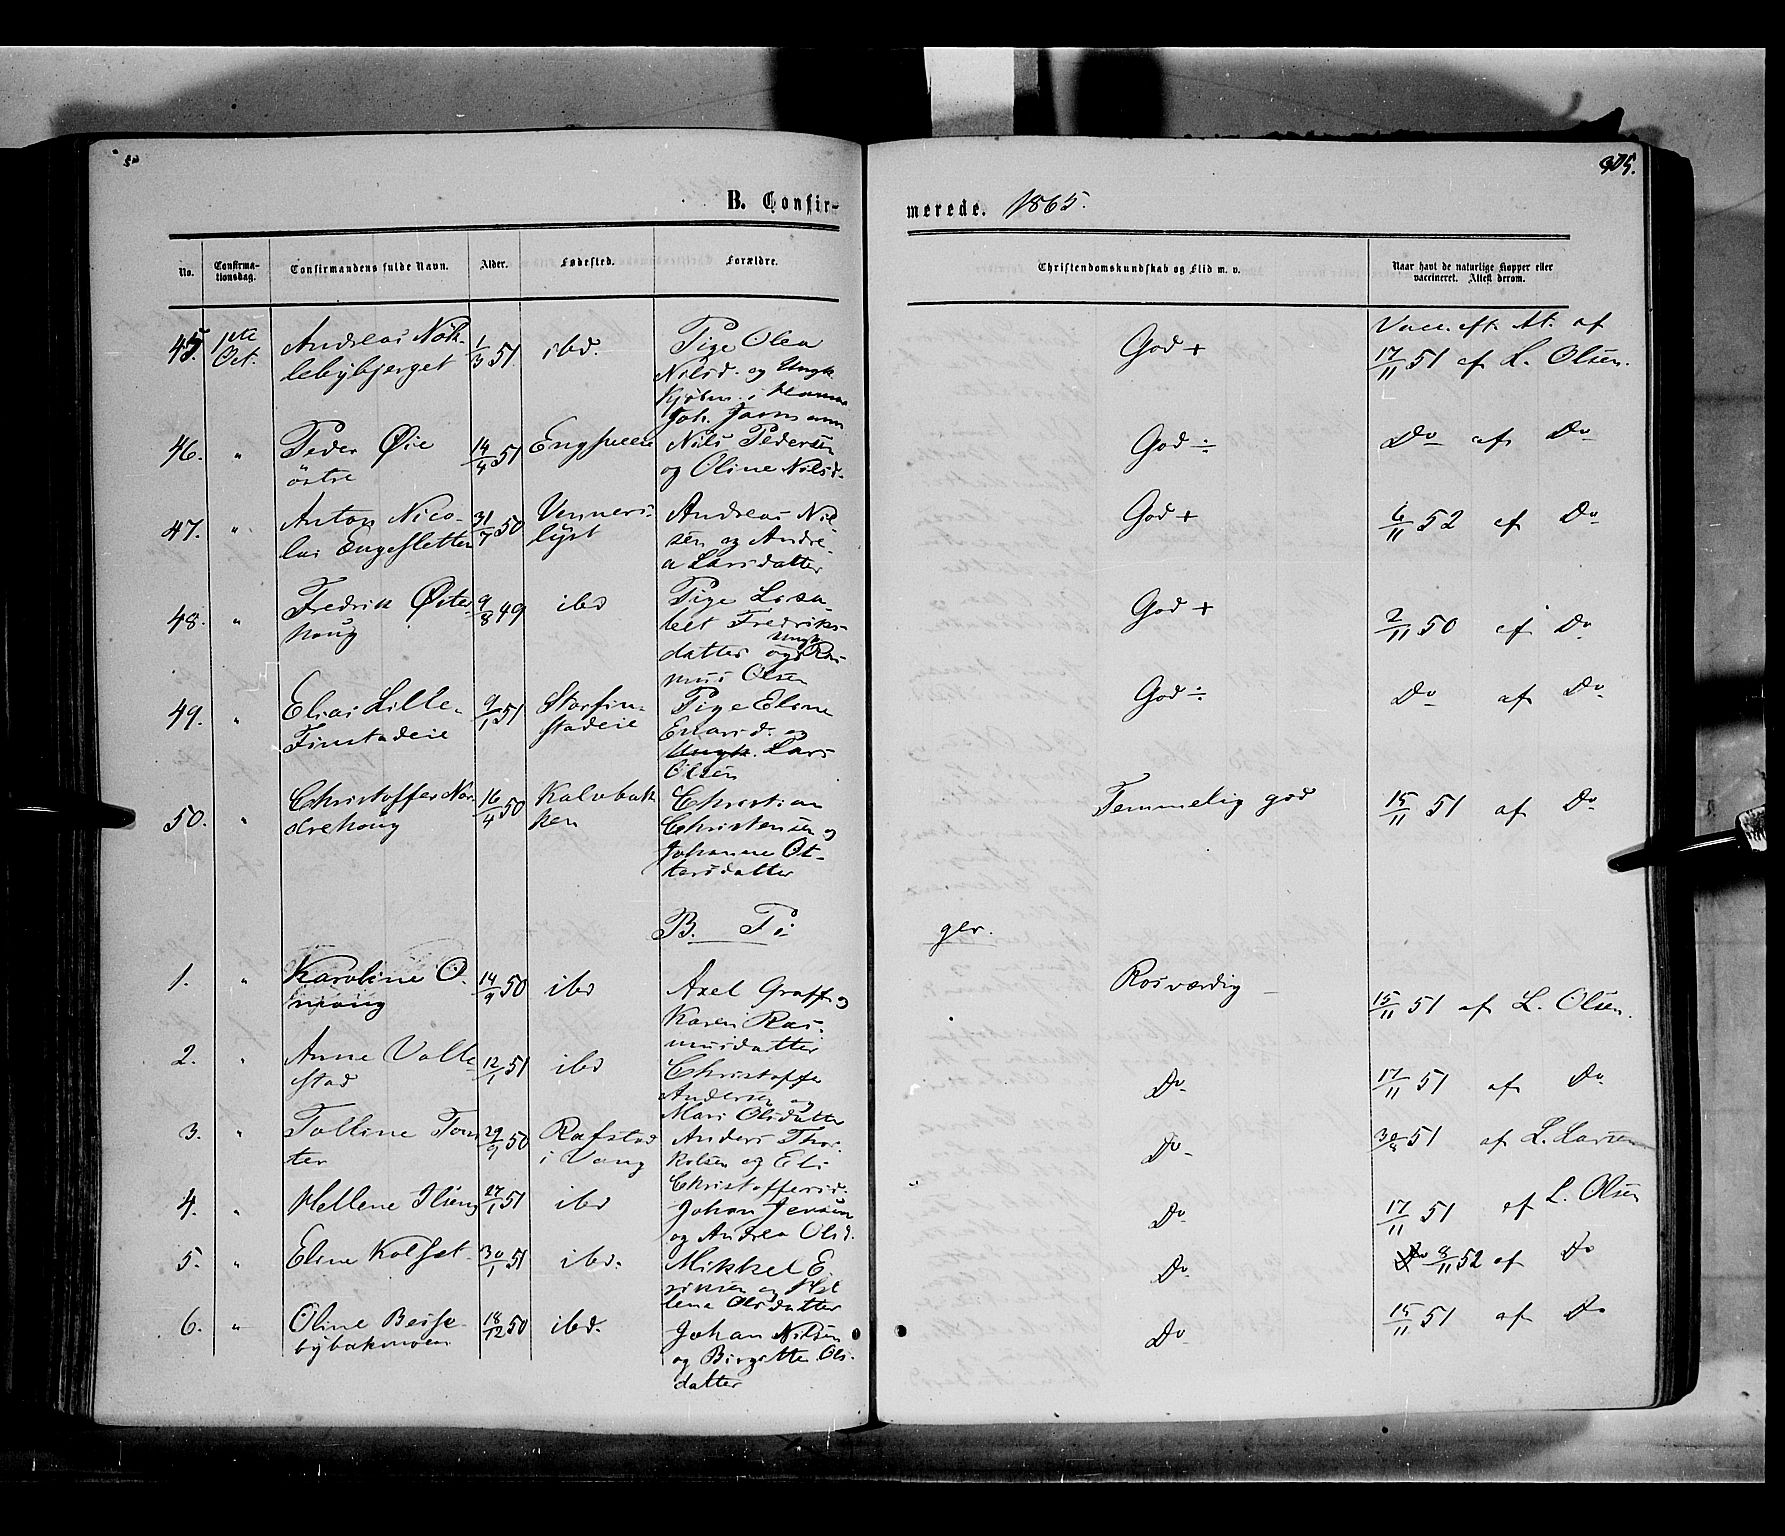 305.
B. Confir-
merede. 1865.
No.
Confirma-
tionsdag.
Confirmandens fulde Navn.
Alder.
Fødested.
Forældre.
Christendomskundskab og Flid m. v.
Naar havt de naturlige Kopper eller
vaccineret. Attest derom.
45. 1ste Oct. Andreas Nök-
lebybjerget 1/3 51. ibd.
Pige Olea
Nilsd. og Ungk.
Kjøbm. i Hamar
Joh.
God +
Vacc. eft. At. af
17/11 51 af L. Olsen.
46. " Peder Øie
östre 14/4 51
Nils Pedersen
og Oline Nilsd.
God ÷
Do af Do
47. " Anton Nico-
lai Engesletten 31/7 50 Venners-
lyst
Andreas Nil-
sen og Andre-
a Larsdatter
God +
6/11 52 af Do
48. " Fredrik Øster-
haug 9/8 49 ibd
Pige Lisa-
bet Fredriks-
datter og Ungk. Ras-
mus Olsen
God +
2/11 50 af Do
49. " Elias Lille-
Finstadeie 9/1 51 Storfin-
stadeie
Pige Eline
Enarsd. og
Ungk. Lars
Olsen
God ÷
Do af Do
50. " Christoffer Nor-
drehaug 16/4 50 Kalvbak-
ken
Christian
Christensen og
Johanne Ot-
tersdatter
Temmelig god
15/11 51 af Do
B. Pi
ger.
1. " Karoline O-
mhaug 14/9 50 ibd
Axel Graff og
Karen Ras-
musdatter
Rosværdig
15/11 51 af L. Olsen.
2. " Anne Volle-
stad 12/1 51 ibd
Christoffer
Andersen og
Mari Olsdatter
Do
17/11 51 af Do
3. " Tolline Toms-
ter 29/9 50 Rafstad
i Vang
Anders Thor-
kelsen og Eli
Christoffersd.
Do
30/8 51 af L. Larsen
4. " Hellene Ilseng 27/1 51 ibd
Johan Jensen
og Andrea Olsd.
Do
17/11 51 af L. Olsen
5. " Eline Kolset 30/1 51 ibd.
Mikkel E-
riksen og Hel-
lena Olsdatter
Do
8/11 52 af Do
6. " Oline Berse-
bybakmoen 18/12 50 ibd.
Johan Nilsen
og Birgitte Ols-
datter
Do
15/11 51 af Do